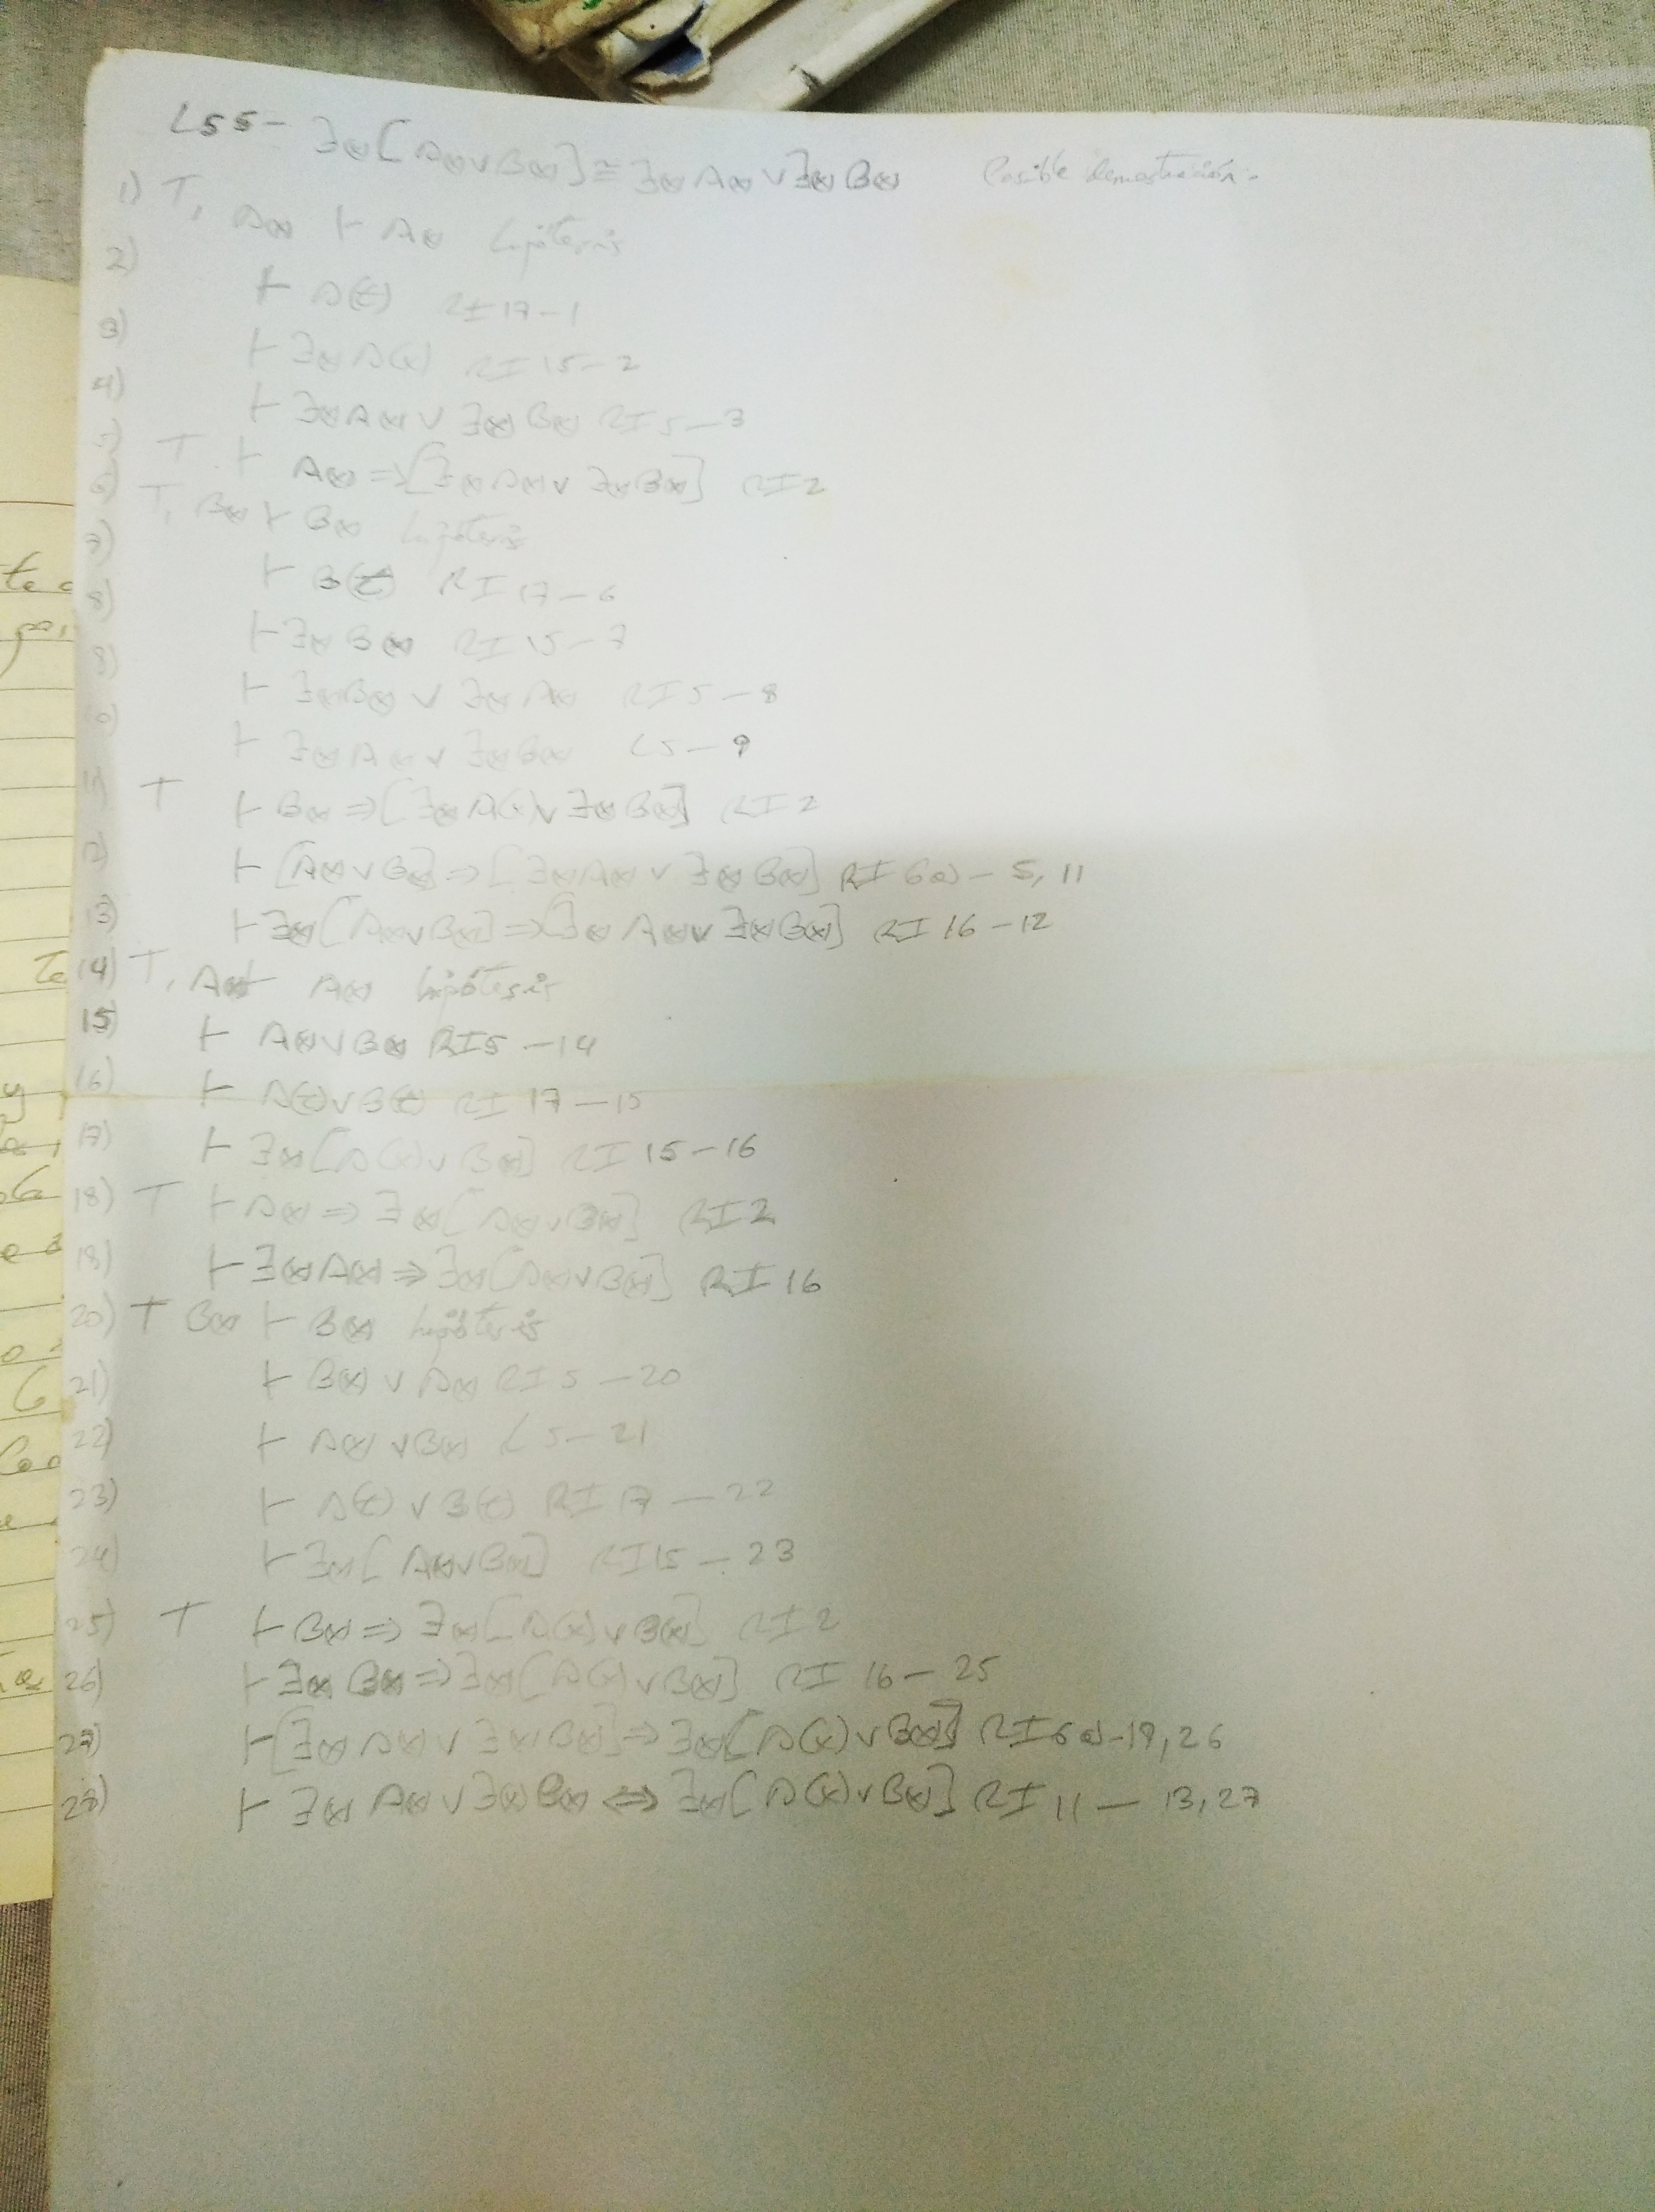 L55- ∃(x)[A(x)∨B(x)]≅∃(x)A(x)∨∃(x)B(x) Posible demostración.-
1) T, A(x) ⊢ A(x) hipótesis
2) ⊢ A(t) RI 17-1
3) ⊢ ∃(x)A(x) RI 15-2
4) ⊢ ∃(x)A(x) ∨ ∃(x)B(x) RI 5-3
5) T ⊢ A(x)=>[∃(x)A(x)∨ ∃(x)B(x)] RI 2
6) T, B(x) ⊢ B(x) hipótesis
7) ⊢ B(t) RI 17-6
8) ⊢ ∃(x)B(x) RI 15-7
9) ⊢ ∃(x)B(x) ∨ ∃(x)A(x) RI 5-8
10) ⊢ ∃(x)A(x) ∨ ∃(x)B(x) L5-9
11) T ⊢ B(x)=>[∃(x)A(x)∨∃(x)B(x)] RI 2
12) ⊢ [A(x)∨B(x)]=>[∃(x)A(x) ∨ ∃(x)B(x)] RI 6a)-5,11
13) ⊢ ∃(x)[A(x)∨B(x)]=>[∃(x)A(x)∨ ∃(x)B(x)] RI 16-12
14) T, A(x) ⊢ A(x) hipótesis
15) ⊢ A(x)∨B(x) RI5-14
16) ⊢ A(t)∨B(t) RI 17-15
17) ⊢ ∃(x)[A(x)∨B(x)] RI 15-16
18) T ⊢ A(x)=> ∃(x)[A(x)∨B(x)] RI2
19) ⊢ ∃(x)A(x)=>∃(x)[A(x)∨B(x)] RI 16
20) T B(x) ⊢ B(x) hipótesis
21) ⊢ B(x) ∨ A(x) RI 5-20
22) ⊢ A(x) ∨B(x) L5-21
23) ⊢ A(t) ∨ B(t) RI 17-22
24) ⊢ ∃(x)[A(x)∨B(x)] RI15-23
25) T ⊢ B(x)=> ∃(x)[A(x)∨B(x)] RI 2
26) ⊢ ∃(x)B(x)=>∃(x)[A(x)∨B(x)] RI 16-25
27) ⊢ [∃(x)A(x)∨ ∃(x)B(x)]=>∃(x)[A(x)∨B(x)] RI 6a)-19,26
28) ⊢ ∃(x)A(x)∨∃(x)B(x) <=> ∃(x)[A(x)∨B(x)] RI 11-13,27